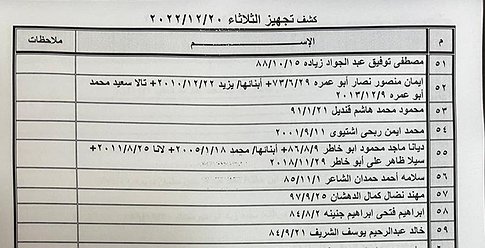 كشف تجهيز الثلاثاء ٢٠٢٢/١٢/٢٠
م الإســـــــم ملاحظات
٥١ مصطفى توفيق عبد الجواد زياده ٨٨/١٠/١٥
٥٢ ايمان منصور نصار أبو عمره ٧٣/٦/٢٩+ أبنائها/ يزيد ٢٠١٠/١٢/٢٢+ تالا سعيد محمد
أبو عمره ٢٠١٣/١٢/٩
٥٣ محمود محمد هاشم قنديل ٩١/١/٢١
٥٤ محمد ايمن ربحي اشتيوي ٢٠٠١/٩/١١
٥٥ ديانا ماجد محمود ابو خاطر ٨٦/٨/٩+ أبنائها/ محمد ٢٠٠٥/١/١٨+ لانا ٢٠١١/٨/٢٥+
سيلا ظاهر علي أبو خاطر ٢٠١٨/١١/٢٩
٥٦ سلامه أحمد حمدان الشاعر ٨٥/١١/١
٥٧ مهند نضال كمال الدهشان ٩٧/٩/٢٥
٥٨ ابراهيم فتحي ابراهيم جنينه ٨٤/٨/٢
٥٩ خالد عبدالرحيم يوسف الشريف ٨٤/٩/٢١